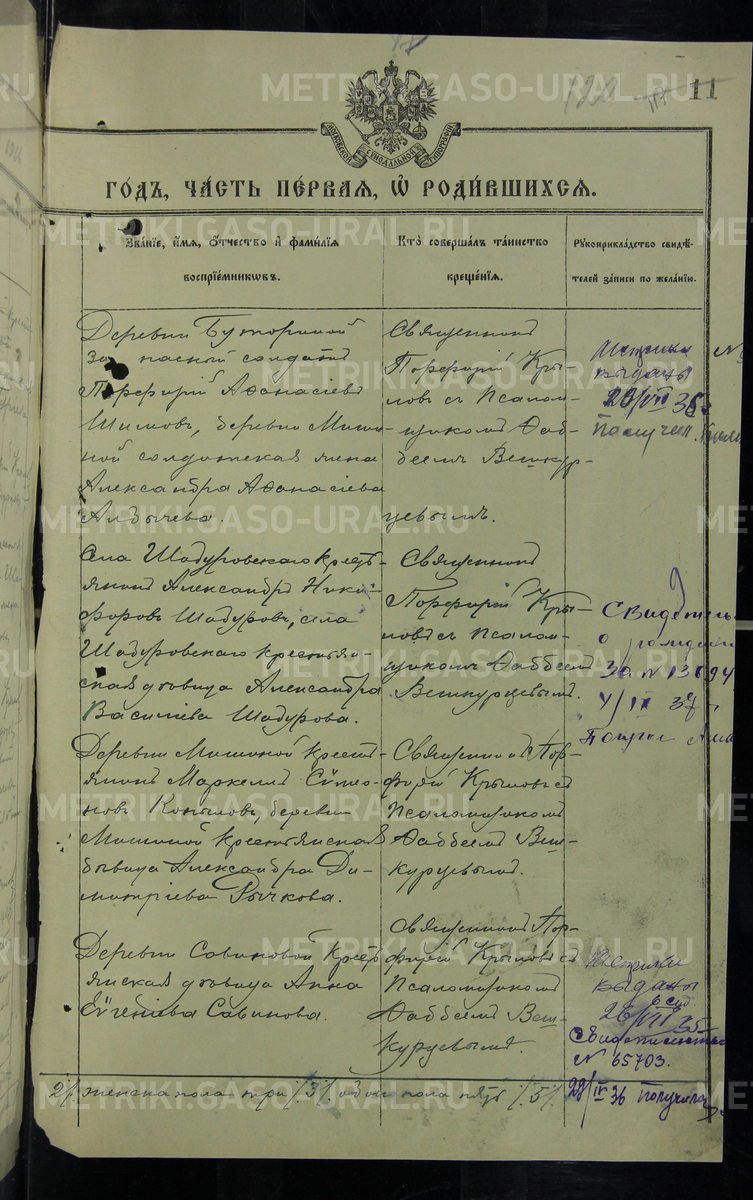 11
МОСКОВСКОЙ СѴНОДАЛЬНОЙ ТИПОГРАФІИ
ГОДЪ, ЧАСТЬ ПЕРВАЯ, Ѡ РОДИВШИХСЯ.
Званіе, имя, отчество и фамилія
воспріемниковъ.
Кто совершалъ таинство
крещенія.
Рукоприкладство свидѣ-
телей записи по желанію.
Деревни Буториной
запасный солдатъ
Порфирій Аѳанасіевъ
Шиловъ, деревни Миши-
ной солдатская жена
Александра Аѳанасіева
Алдычева.
Священникъ
Порфирій Кры-
ловъ съ Псалом-
щикомъ Ѳад-
деемъ Вешкур-
цевымъ.
выданы
Села Шадуровскаго кресть-
янинъ Александръ Ники-
форовъ Шадуровъ, села
Шадуровскаго крестьян-
ская дѣвица Александра
Василіева Шадурова.
Священникъ
Порфирій Кры-
ловъ съ Псалом-
щикомъ Ѳаддеемъ
Вешкурцевымъ.
Свидетель
о рождении
Деревни Мишиной крестъ-
янинъ Маркеллъ Сѵмео-
новъ Копыловъ, деревни
Мишиной крестьянская
дѣвица Александра Ди-
митріева Рычкова.
Священникъ Пор-
фирій Крыловъ съ
Псаломщикомъ
Ѳаддеемъ Веш-
курцевымъ.
Деревни Савиновой крест-
янская дѣвица Анна
Евгеніева Савинова.
Священникъ Пор-
фирій Крыловъ съ
Псаломщикомъ
Ѳаддеемъ Веш-
курцевымъ.
Метрики
выданы
Свидетельство
№ 65703.
2/. женска пола три /.3/. обоего пола пять /.5/.
METRIKI.GASO-URAL.RU